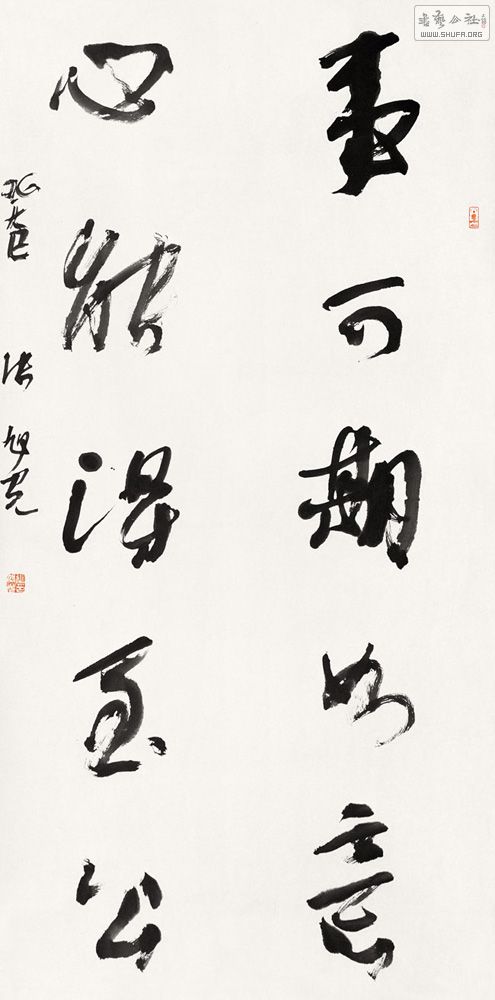 书艺公社
WWW.SHUFA.ORG
事可期如意
心能得至公
张旭光